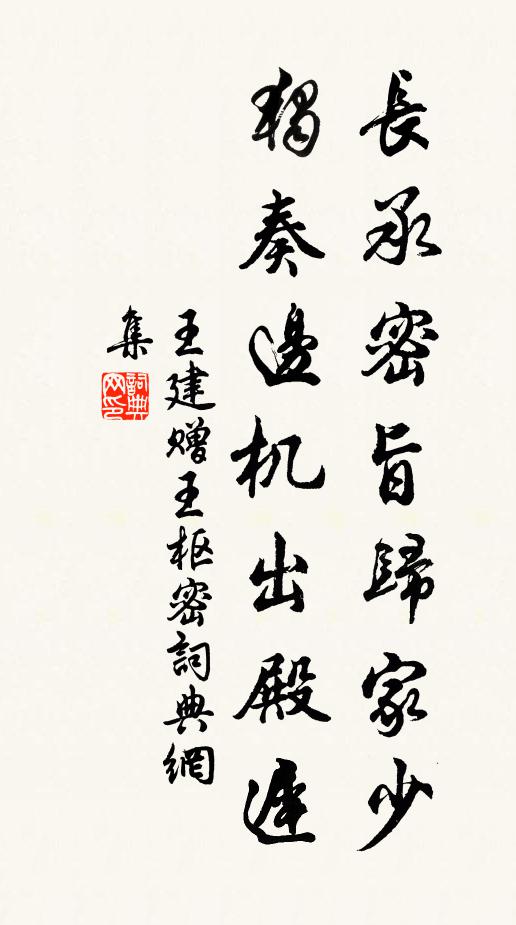 長承密旨歸家少
獨奏邊机出殿遲
王建赠王枢密詞典網
集
詞典
网印